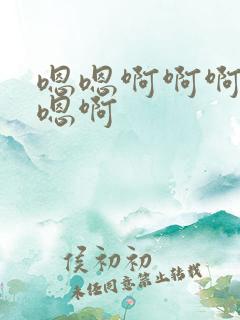 嗯嗯啊啊啊
嗯啊
侯初初
未经同意禁止转载